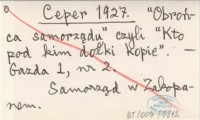 Ceper 1927. "Obroń-
ca samorządu" czyli "Kto
pod kim dołki kopie". —
Gazda 1, nr 2.
Samorząd w Zakopa-
nem.